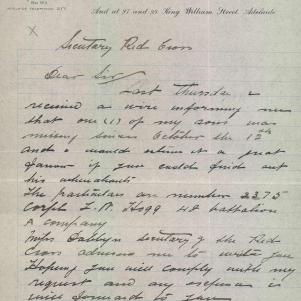 And at 97 and 99 King William Street, Adelaide
Secretary Red Cross
Dear Sir
Last Thursday I
received a wire informing me
that one (1) of my sons was
missing since October the 12th
and I would esteem it a great
favour if you could find out
his whereabouts
The particulars are number 2275
Corpl F. R. Hogg 48 battalion
A company
Miss secretary of the Red
Cross advises me to write you
Hoping you will comply with my
request and any expense is
will forward to you